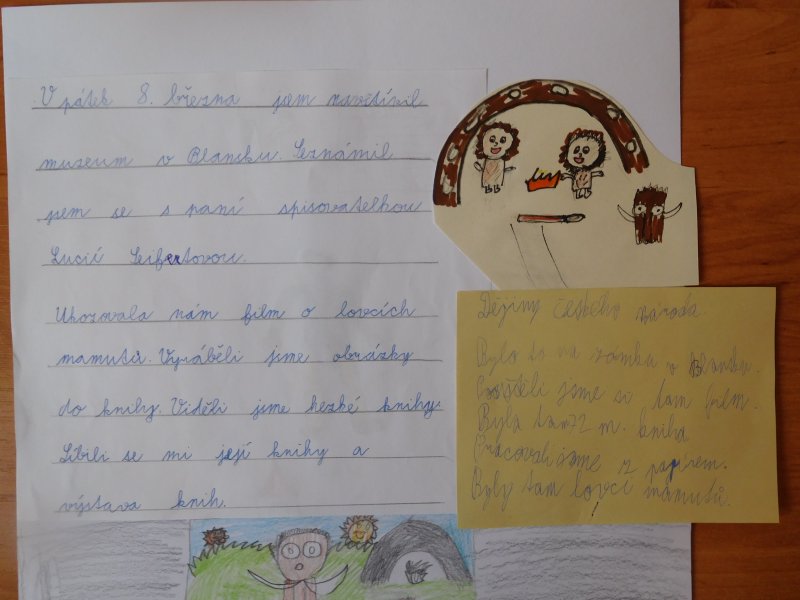 V pátek 8. března jsem navštívil
muzeum v Blansku. Seznámil
jsem se s paní spisovatelkou
Lucií Seifertovou.
Ukazovala nám film o lovcích
mamutů. Vyráběli jsme obrázky
do knihy. Viděli jsme hezké knihy.
Líbili se mi její knihy a
výstava knih.
Dějiny českého národa
Bylo to na zámku v Blansku.
jsme si tam film.
Byla tam 72 m. kniha
Pracovali jsme s papírem.
Byly tam lovci mamutů.